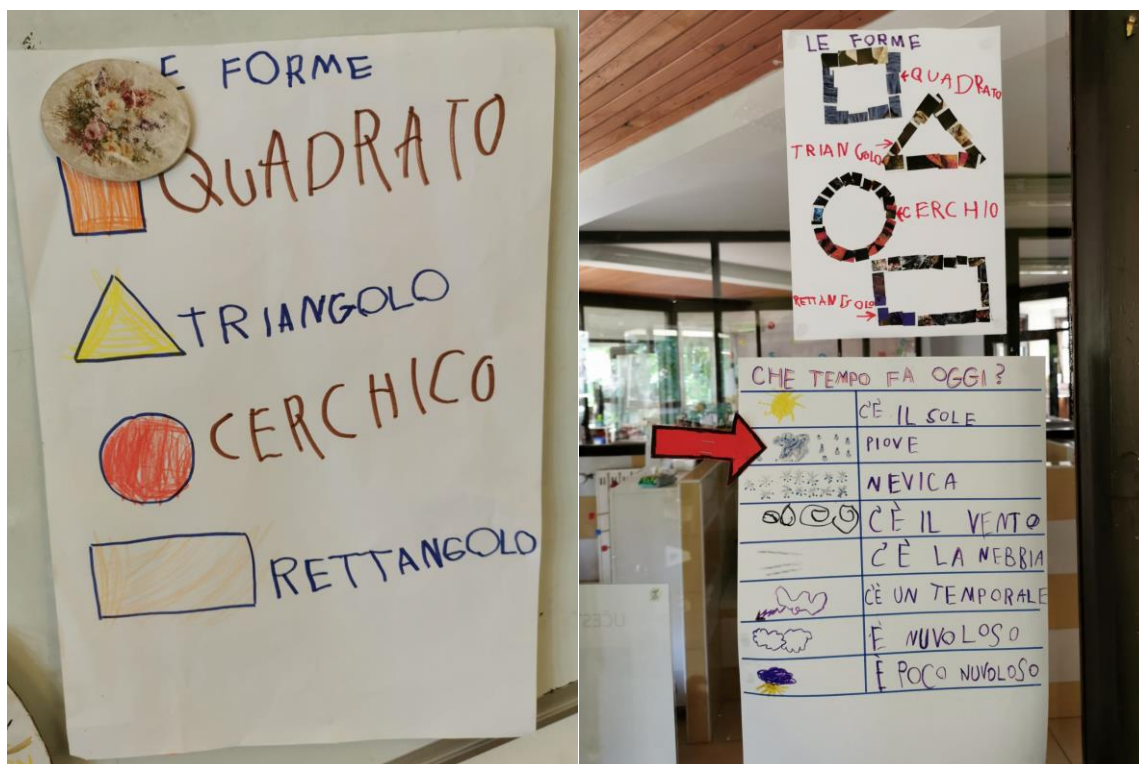 LE FORME
QUADRATO
TRIANGOLO
CERCHICO
RETTANGOLO
LE FORME
QUADRATO
TRIANGOLO
CERCHIO
RETTANGOLO
CHE TEMPO FA OGGI?
C'È IL SOLE
PIOVE
NEVICA
C'È IL VENTO
C'È LA NEBBIA
C'È UN TEMPORALE
È NUVOLOSO
È POCO NUVOLOSO